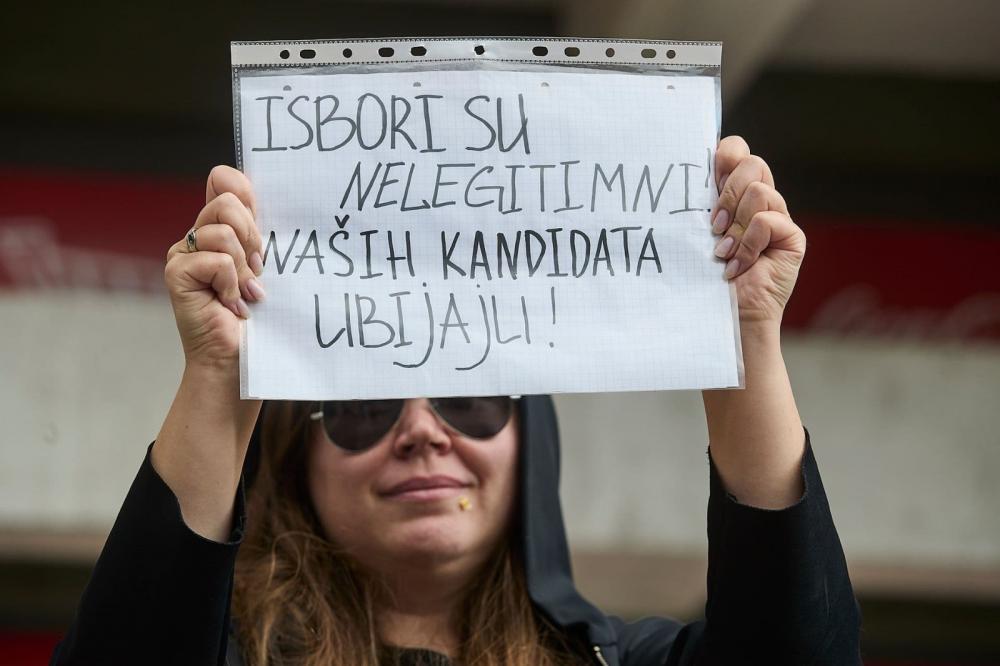 ISBORI SU
NELEGITIMNI!
NAŠIH KANDIDATA
UBIJAJU!